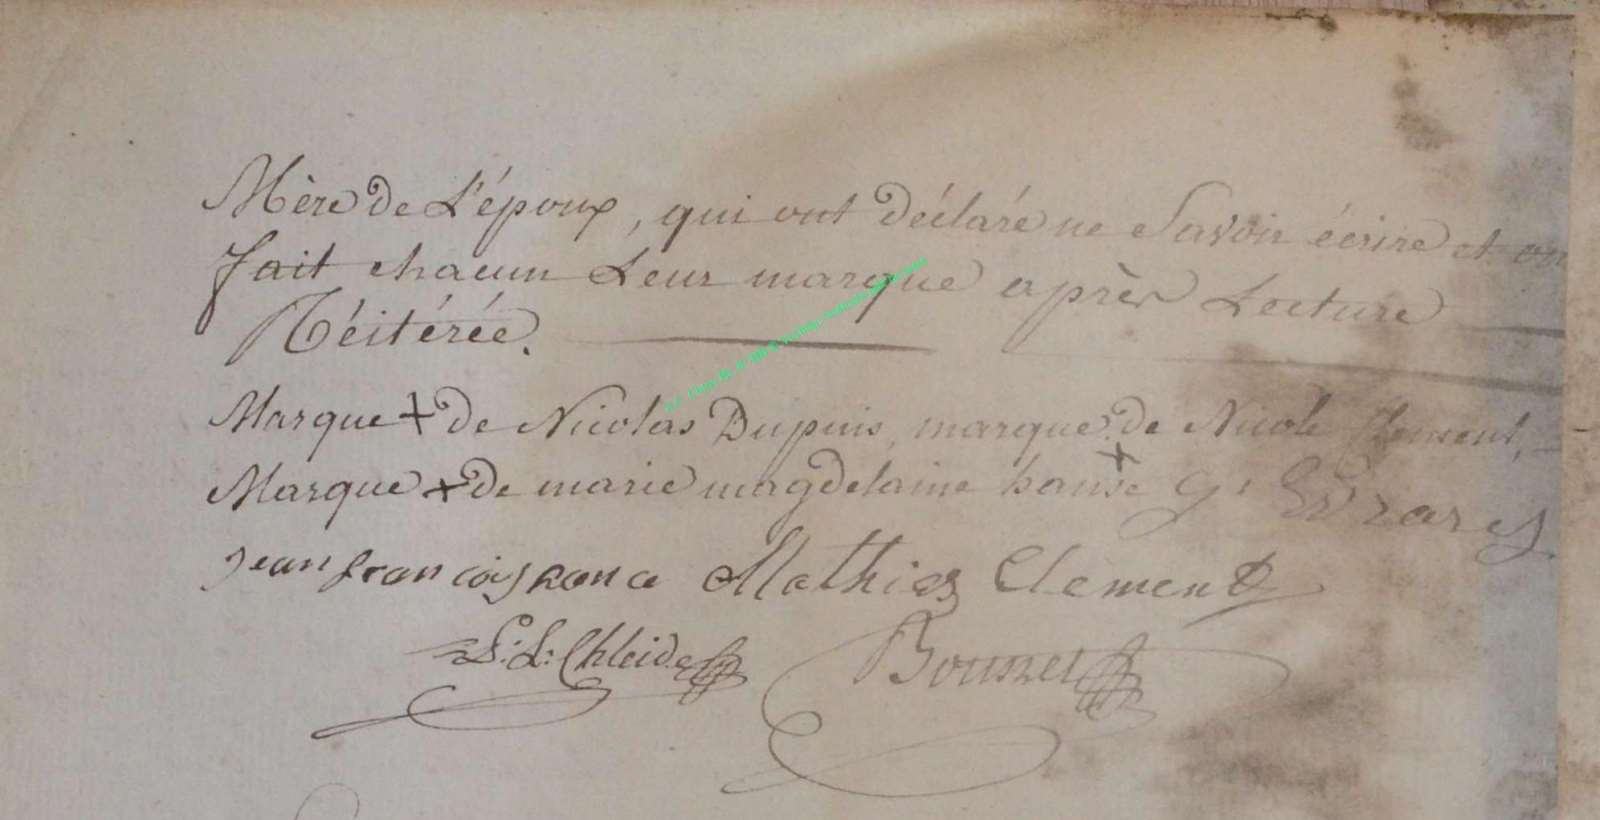 Mère de L'époux, qui ont déclaré ne Savoir écrire et on
fait chacun Leur marque après Lecture
Réitérée.
Marque + de Nicolas Dupuis, marque + de Nicole Clement,
Marque + de marie magdelaine
jean francois Mathieu Clement
Bournel